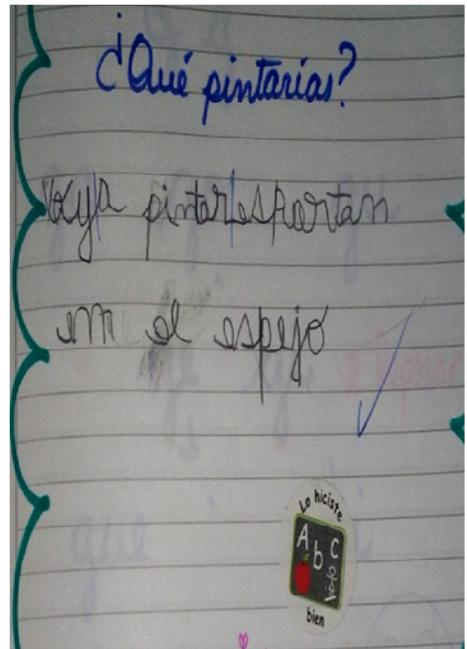 ¿Qué pintarías?
Voy a pintar espartan
en el espejo
Lo hiciste
A b C
bien